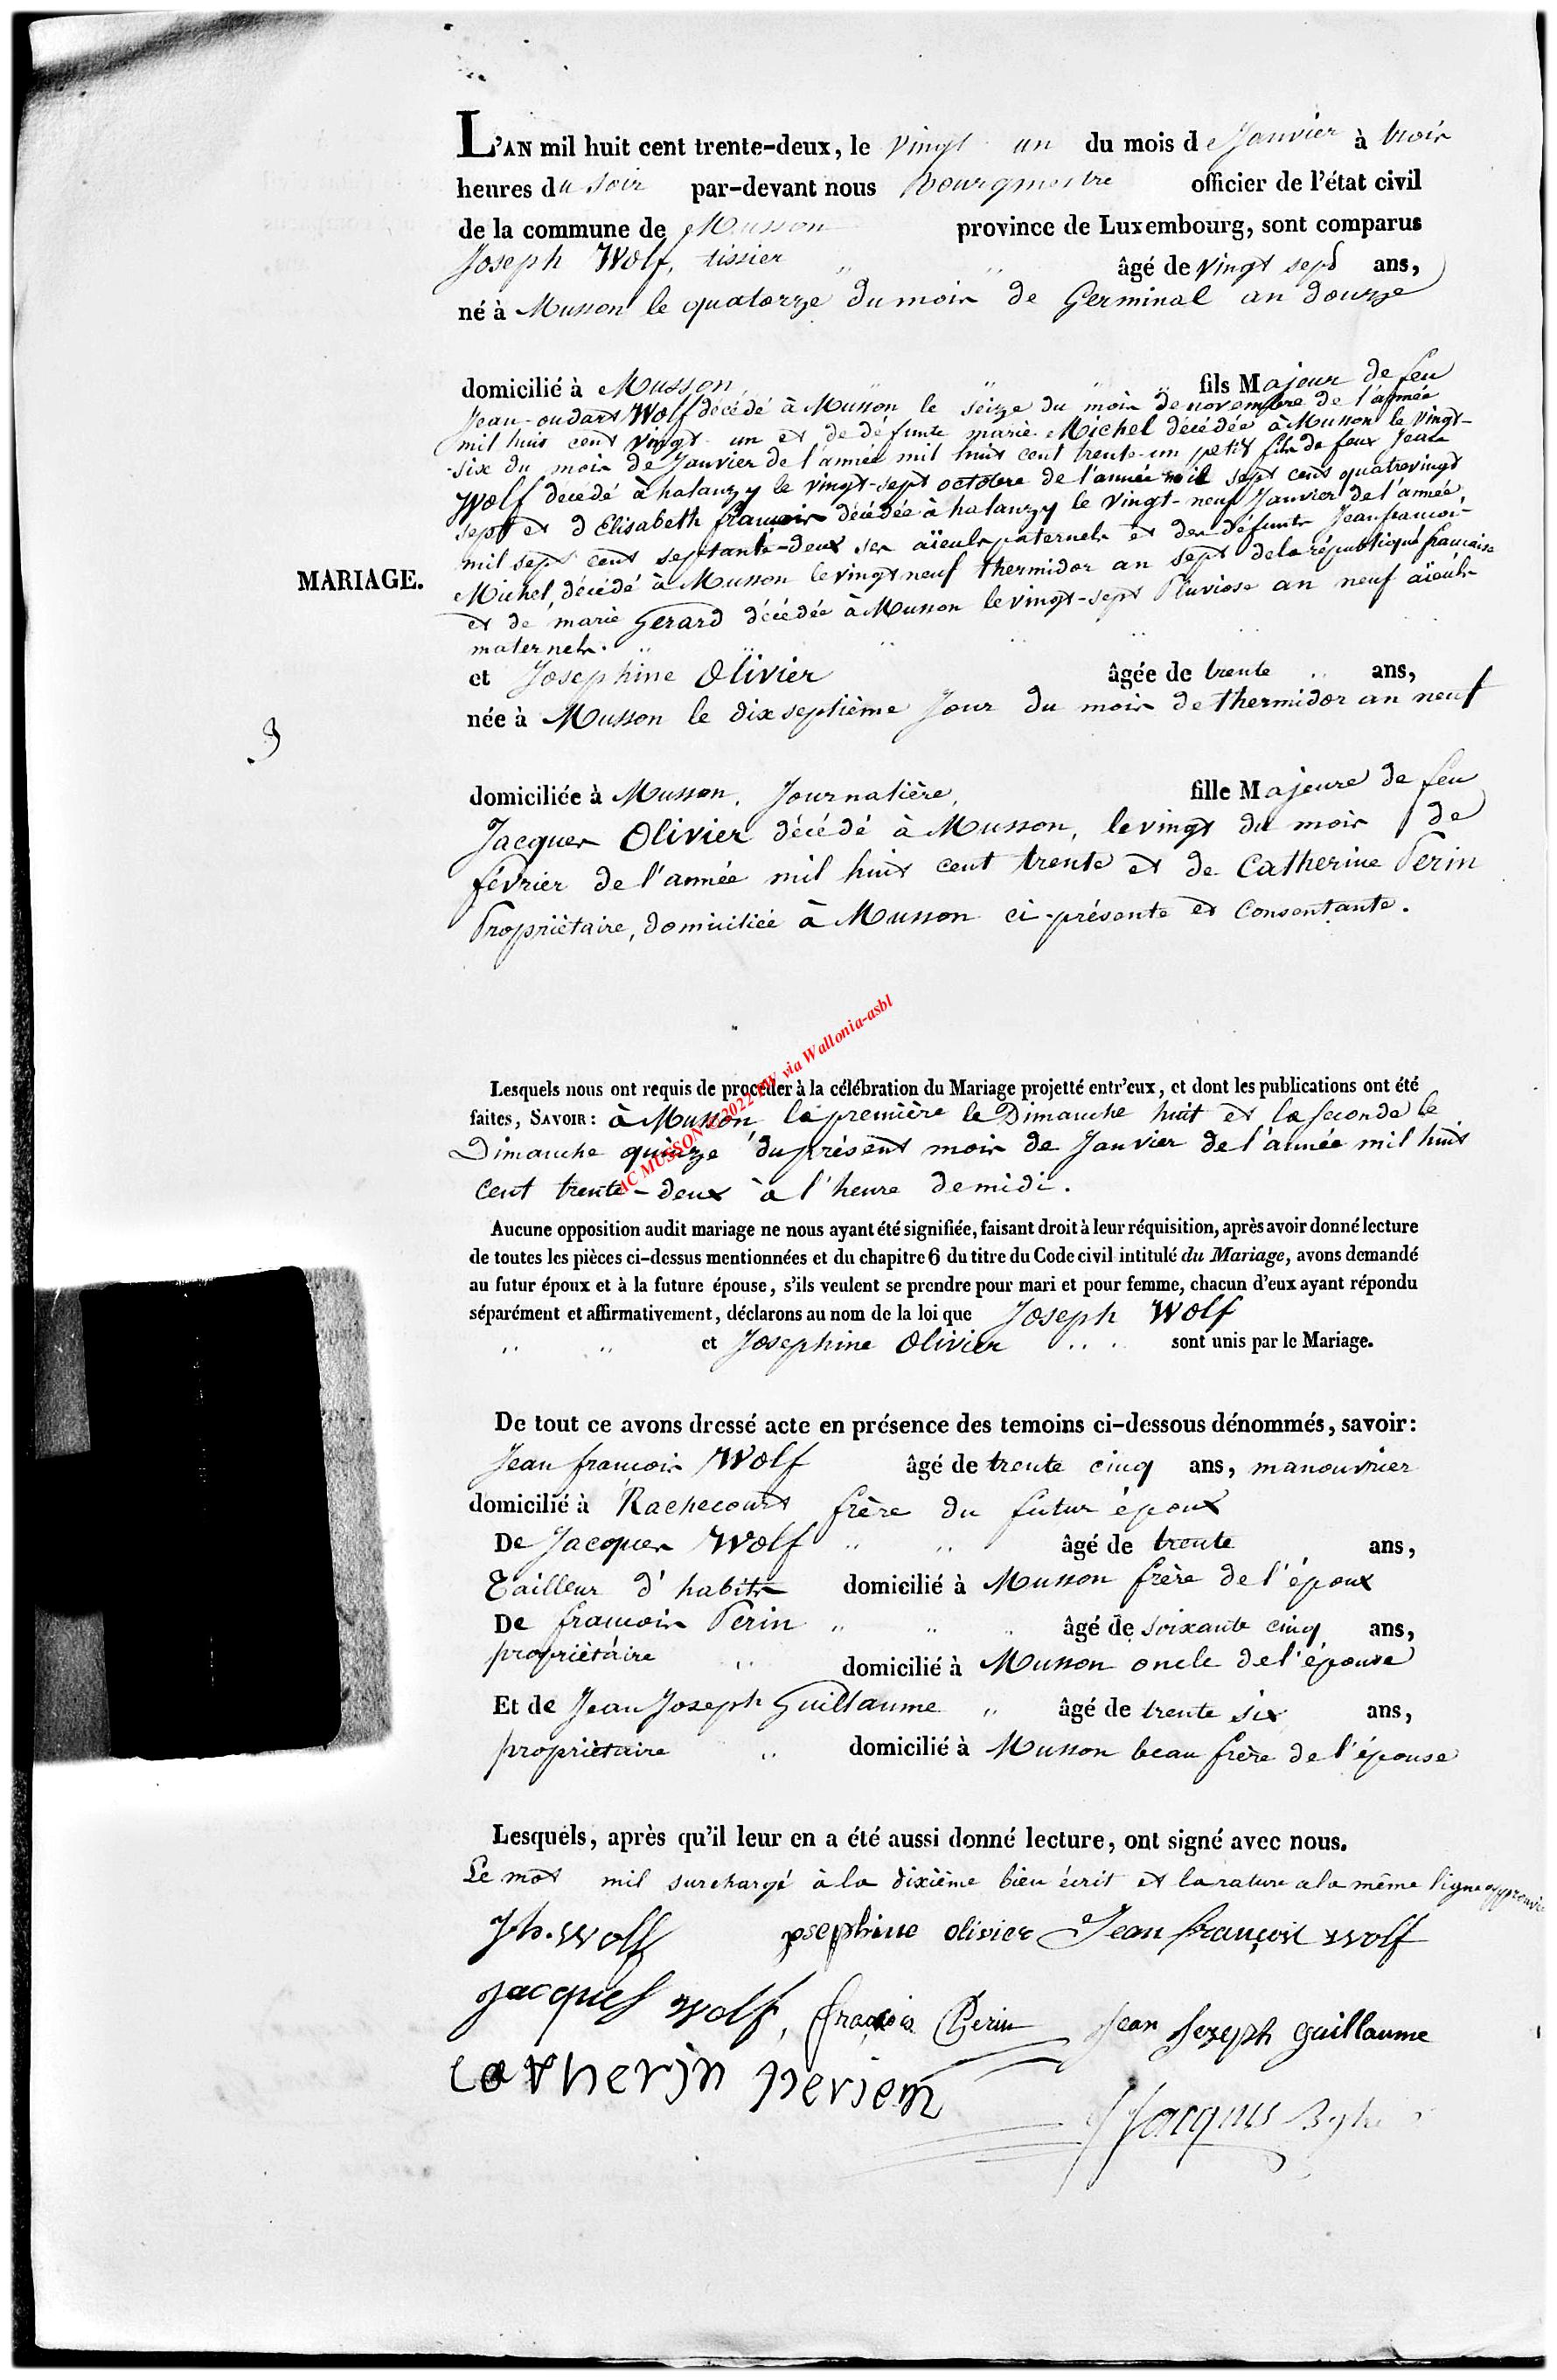 L'AN mil huit cent trente-deux, le vingt un du mois de Janvier à trois
heures du soir par-devant nous Bourgmestre officier de l'état civil
de la commune de Musson province de Luxembourg, sont comparus
Joseph Wolf, tissier âgé de vingt sept ans,
né à Musson le quatorze du mois de Germinal an douze
domicilié à Musson fils Majeur de feu
Jean-oudart Wolf décédé à Musson le seize du mois de novembre de l'année
mil huit cent vingt-un et de défunte marie Michel décédée à Musson le vingt-
six du mois de Janvier de l'année mil huit cent trente-un petit fils de feux Jean
Wolf decédé à halanzy le vingt-sept octobre de l'année mil sept cents quatrevingt
sept et d'Elisabeth francois décédée à halanzy le vingt-neuf Janvier de l'année
mil sept cent septante-deux ses aïeuls paternels et des défunts Jean francois
Michel, décédé à Musson le vingt neuf thermidor an sept de la république francaise
et de marie Gerard décédée à Musson le vingt-sept Pluviose an neuf aïeuls
maternels.
MARIAGE.
et Josephine Olivier âgée de trente ans,
née à Musson le dix septième Jour du mois de thermidor an neuf
3
domiciliée à Musson, Journalière, fille Majeure de feu
Jacques Olivier décédé à Musson, le vingt du mois de
février de l'année mil huit cent trente et de Catherine Perin
Propriétaire, domiciliée à Musson ci-présente et Consentante.
AC MUSSON 2022 via Wallonia-asbl
Lesquels nous ont requis de procéder à la célébration du Mariage projetté entr'eux, et dont les publications ont été
faites, SAVOIR: à Musson, la première le Dimanche huit et la seconde le
Dimanche quinze du présent mois de Janvier de l'année mil huit
Cent trente-deux à l'heure de midi.
Aucune opposition audit mariage ne nous ayant été signifiée, faisant droit à leur réquisition, après avoir donné lecture
de toutes les pièces ci-dessus mentionnées et du chapitre 6 du titre du Code civil intitulé du Mariage, avons demandé
au futur époux et à la future épouse, s'ils veulent se prendre pour mari et pour femme, chacun d'eux ayant répondu
séparément et affirmativement, déclarons au nom de la loi que Joseph Wolf
et Josephine Olivier sont unis par le Mariage.
De tout ce avons dressé acte en présence des temoins ci-dessous dénommés, savoir:
Jean francois Wolf âgé de trente cinq ans, manouvrier
domicilié à Rachecourt frère du futur époux
De Jacques Wolf âgé de trente ans,
Tailleur d'habits domicilié à Musson frère de l'époux
De francois Perin âgé de soixante cinq ans,
propriétaire domicilié à Musson oncle de l'épouse
Et de Jean Joseph Guillaume âgé de trente six ans,
propriétaire domicilié à Musson beau frère de l'épouse
Lesquels, après qu'il leur en a été aussi donné lecture, ont signé avec nous.
Le mot mil surchargé à la dixième bien écrit et la rature a la même ligne approuvés
Jh. Wolff josephine olivier Jean françois wolf
jacques wolf, françois Perin Jean Joseph guillaume
catherin periem
Jacques